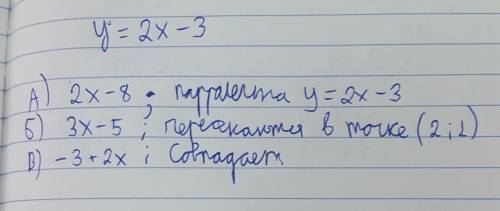 y = 2x - 3
А) 2x - 8 ; парралельна y = 2x - 3
Б) 3x - 5 ; пересекаются в точке (2; 1)
В) - 3 + 2x ; Совпадает